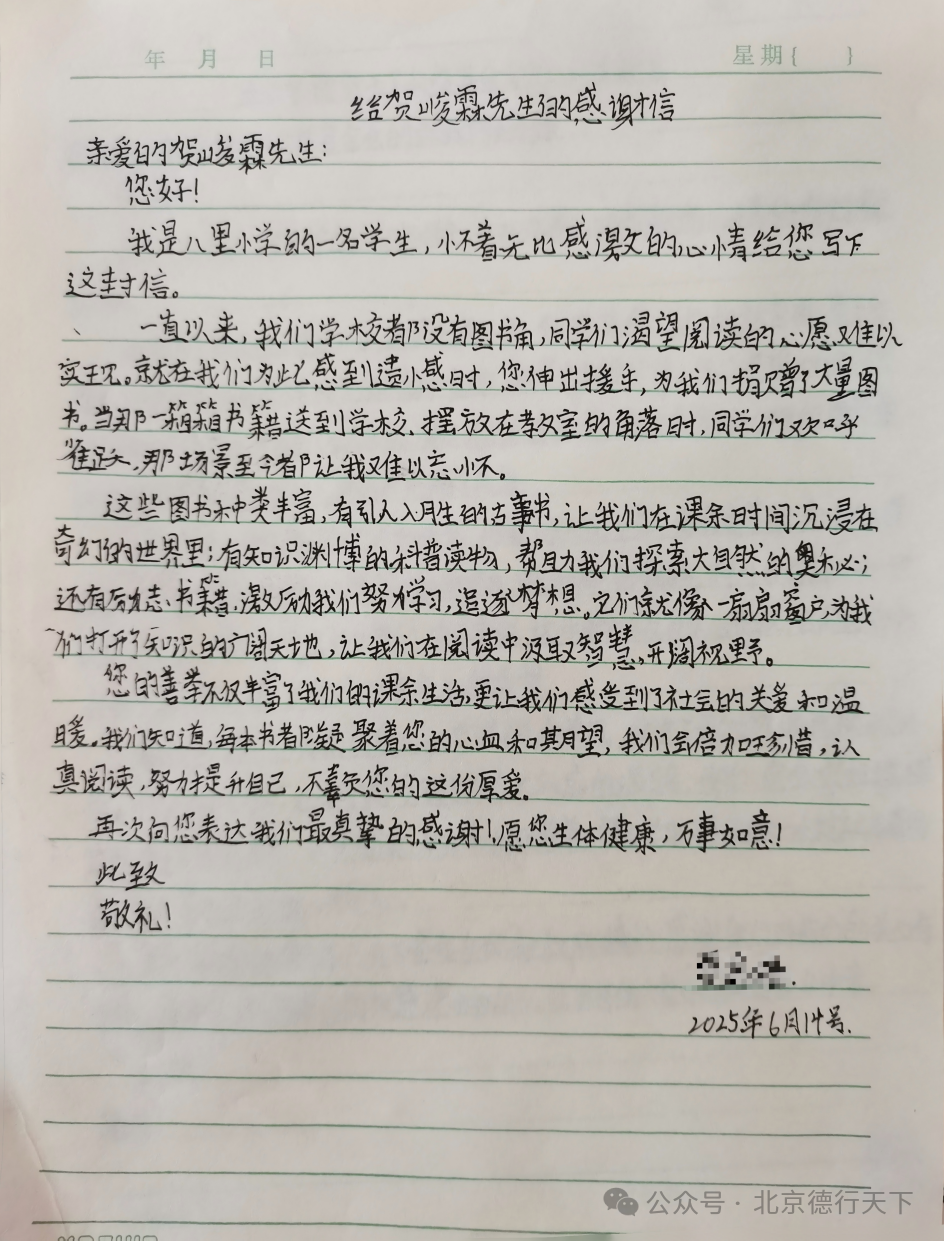 年 月 日 星期{ }
给贺峻霖先生的感谢信
亲爱的贺峻霖先生:
您好!
我是八里小学的一名学生,怀着无比感激的心情给您写下
这封信。
、一直以来,我们学校都没有图书角,同学们渴望阅读的心愿难以
实现。就在我们为此感到遗憾时,您伸出援手,为我们捐赠了大量图
书。当那一箱箱书籍送到学校、摆放在教室的角落时,同学们欢呼
雀跃,那场景至今都让我难以忘怀。
这些图书种类丰富,有引人入胜的故事书,让我们在课余时间沉浸在
奇幻的世界里;有知识渊博的科普读物,帮助我们探索大自然的奥秘;
还有励志书籍,激励我们努力学习,追逐梦想。它们就像一扇扇窗户,为我
们打开了知识的广阔天地,让我们在阅读中汲取智慧,开阔视野。
您的善举不仅丰富了我们的课余生活,更让我们感受到了社会的关爱和温
暖。我们知道,每本书都凝聚着您的心血和期望,我们会倍加珍惜,认
真阅读,努力提升自己,不辜负您的这份厚爱。
再次向您表达我们最真挚的感谢!愿您生体健康,万事如意!
此致
敬礼!
2025年6月14号.
公众号·北京德行天下